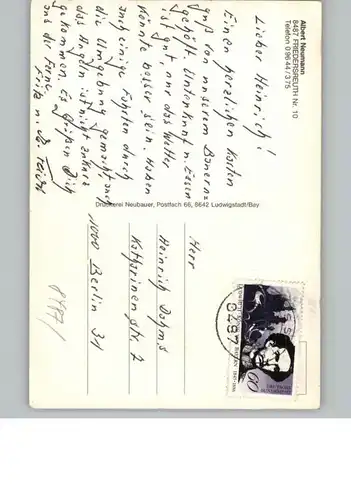 Albert Neumann
8487 FRIEDERSREUTH Nr. 10
Telefon 0 96 44 / 3 75
Lieber Heinrich!
Einen herzlichen Karten
gruß von unserem Bauern=
gehöft. Unterkunft u. Essen
ist gut, nur das Wetter
könnte besser sein. Haben
auch einige Fahrten durch
die Umgebung gemacht, auch
das Angeln ist nicht zu kurz
gekommen. Es grüßen Dich
aus der Ferne,
Fritz u.
Druckerei Neubauer, Postfach 66, 8642 Ludwigstadt/Bay
Herr
Heinrich Dohms
Katharinenstr. 2
1000 Berlin 31
8487
60